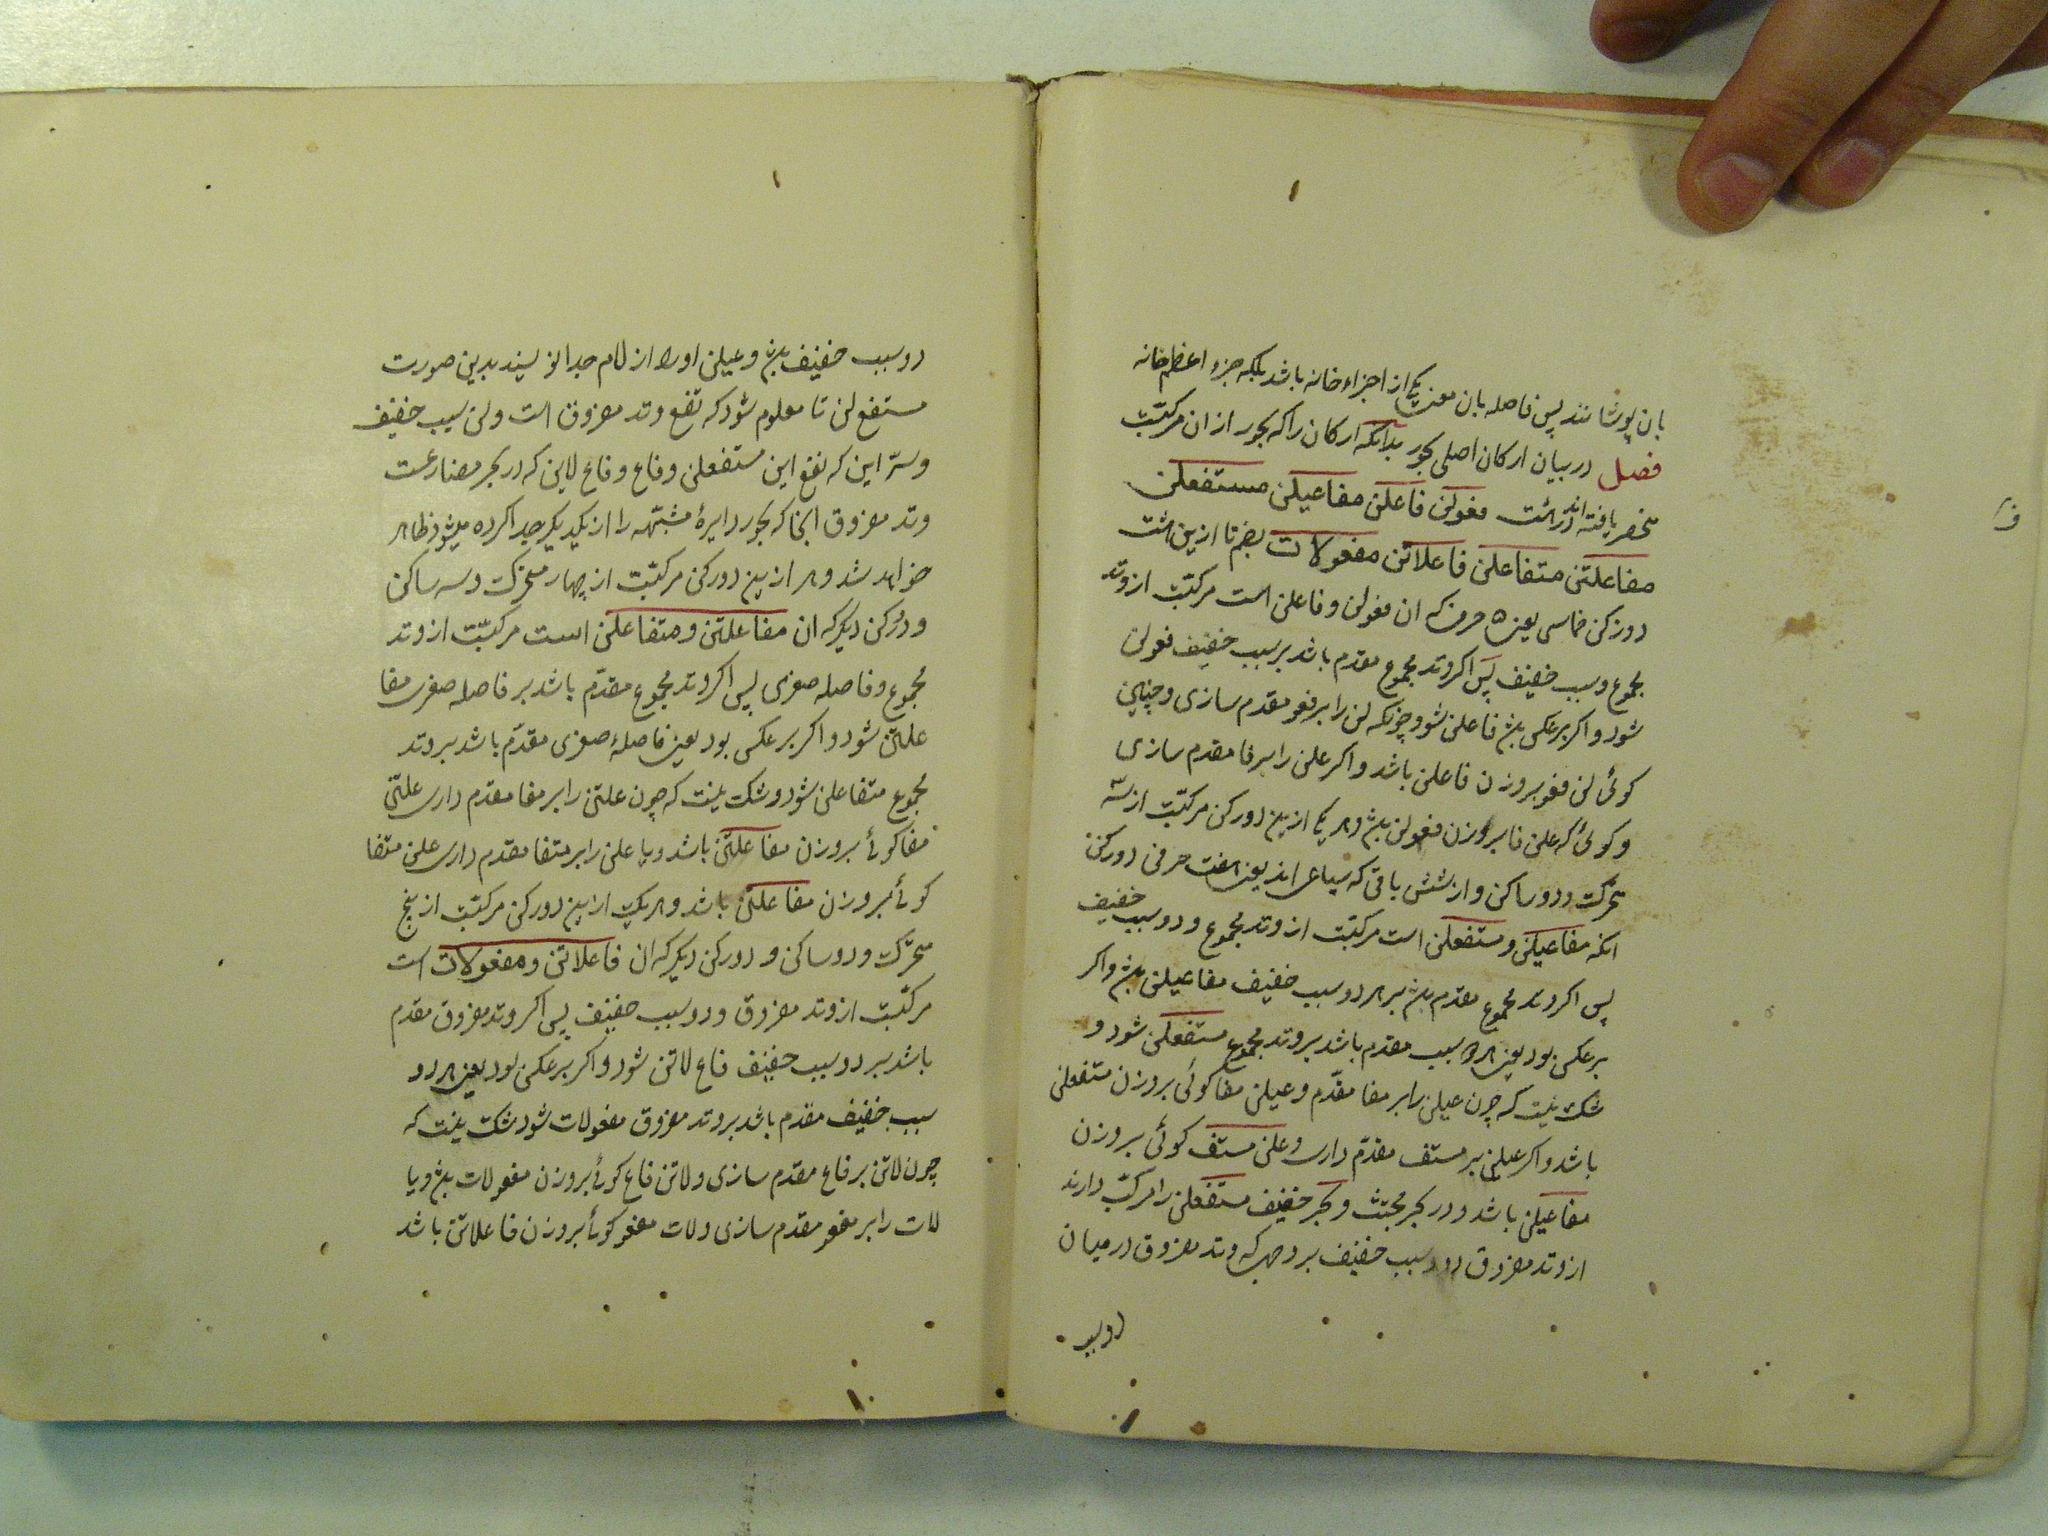 بان پوشانند پس فاصله بان معنی یکی از اجزاء خانه باشد بلکه جزء اعظم خانه
فصل در بیان ارکان اصلی بحور بدانکه ارکان را که بحور از ان مرکبت
منحصر یافته اند در هشت فعولن فاعلن مفاعیلن مستفعلن
مفاعلتن متفاعلن فاعلاتن مفعولات بضم تا ازین هشت
دو رکن خماسی یعنی ۵ حرفی که ان فعولن و فاعلن است مرکبت از وتد
مجموع و سبب خفیف پس اکر وتد مجموع مقدم باشد بر سبب خفیف فعولن
شود و اکر برعکس باشد فاعلن شود چونکه لن را بر فعو مقدم سازی و چنین
کوئی لن فعو بروزن فاعلن باشد و اکر علن را بر فا مقدم سازی
و کوئی که علن فا بروزن فعولن باشد و هر یکی ازین دو رکن مرکبت از سه
متحرک و دو ساکن و از شش باقی که سباعی اند یعنی هفت حرفی دو رکن
انکه مفاعیلن و مستفعلن است مرکبت از وتد مجموع و دو سبب خفیف
پس اکر وتد مجموع مقدم باشد بر هر دو سبب خفیف مفاعیلن باشد و اکر
برعکس بود یعنی هر دو سبب مقدم باشد بر وتد مجموع مستفعلن شود و
شک نیست که چون عیلن را بر مفا مقدّم و عیلن مفا کوئی بروزن مستفعلن
باشد و اکر علن بر مستف مقدّم داری و علن مستف کوئی بروزن
مفاعیلن باشد و در بحر مجتث و بحر خفیف مستفعلن را مرکب دارند
از وتد مفروق و دو سبب خفیف بر وجهی که وتد مفروق در میان
دو سبب
دو سبب خفیف باشد و عیلن او را از لام جدا نویسند بدین صورت
مستفع لن تا معلوم شود که تفع وتد مفروق است و لن سبب خفیف
و سرّ این که تفع این مستفعلن و فاع و فاع لاتن که در بحر مضارعست
وتد مفروق انجا که بحور دایرهٔ مشتبهه را از یکدیکر جدا کرده میشود ظاهر
خواهد شد و هر ازین دو رکن مرکبت از چهار متحرک و سه ساکن
و دو رکن دیکر که ان مفاعلتن و متفاعلن است مرکبت از وتد
مجموع و فاصله صغری پس اکر وتد مجموع مقدّم باشد بر فاصله صغری مفا
علتن شود و اکر برعکس بود یعنی فاصلهٔ صغری مقدّم باشد بر وتد
مجموع متفاعلن شود و شک نیست که چون علتن را بر مفا مقدّم داری علتن
مفا کوئی بروزن مفاعلتن باشد و یا علن را بر متفا مقدم داری علن متفا
کوئی بروزن مفاعلتن باشد و هر یک ازین دو رکن مرکبت از پنج
متحرک و دو ساکن و دو رکن دیکر که ان فاعلاتن و مفعولات است
مرکبت از وتد مفروق و دو سبب خفیف پس اکر وتد مفروق مقدم
باشد بر دو سبب خفیف فاع لاتن شود و اکر برعکس بود یعنی هر دو
سبب خفیف مقدم باشد بر وتد مفروق مفعولات شود شک نیست که
چون لاتن بر فاع مقدّم سازی و لاتن فاع کوئی بروزن مفعولات باشد و یا
لات را بر مفعو مقدم سازی و لات مفعو کوئی بروزن فاعلاتن باشد